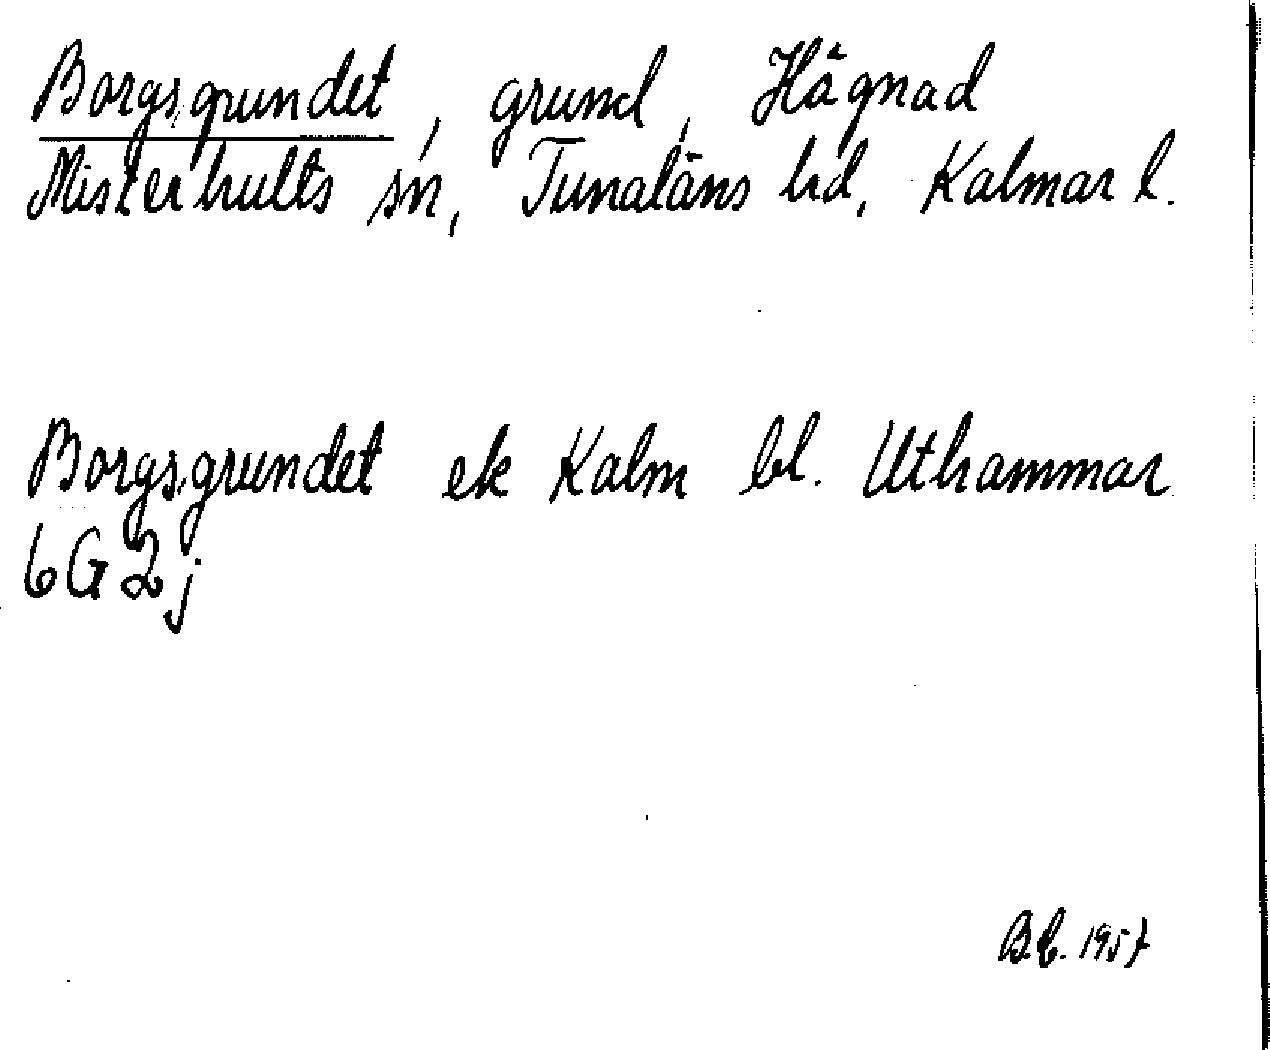 Borgsgrundet, grund, Hägnad
Misterhults sn, Tunaläns hd, Kalmar l.
Borgsgrundet ek Kalm bl. Uthammar
6G2j
B.C. 1957